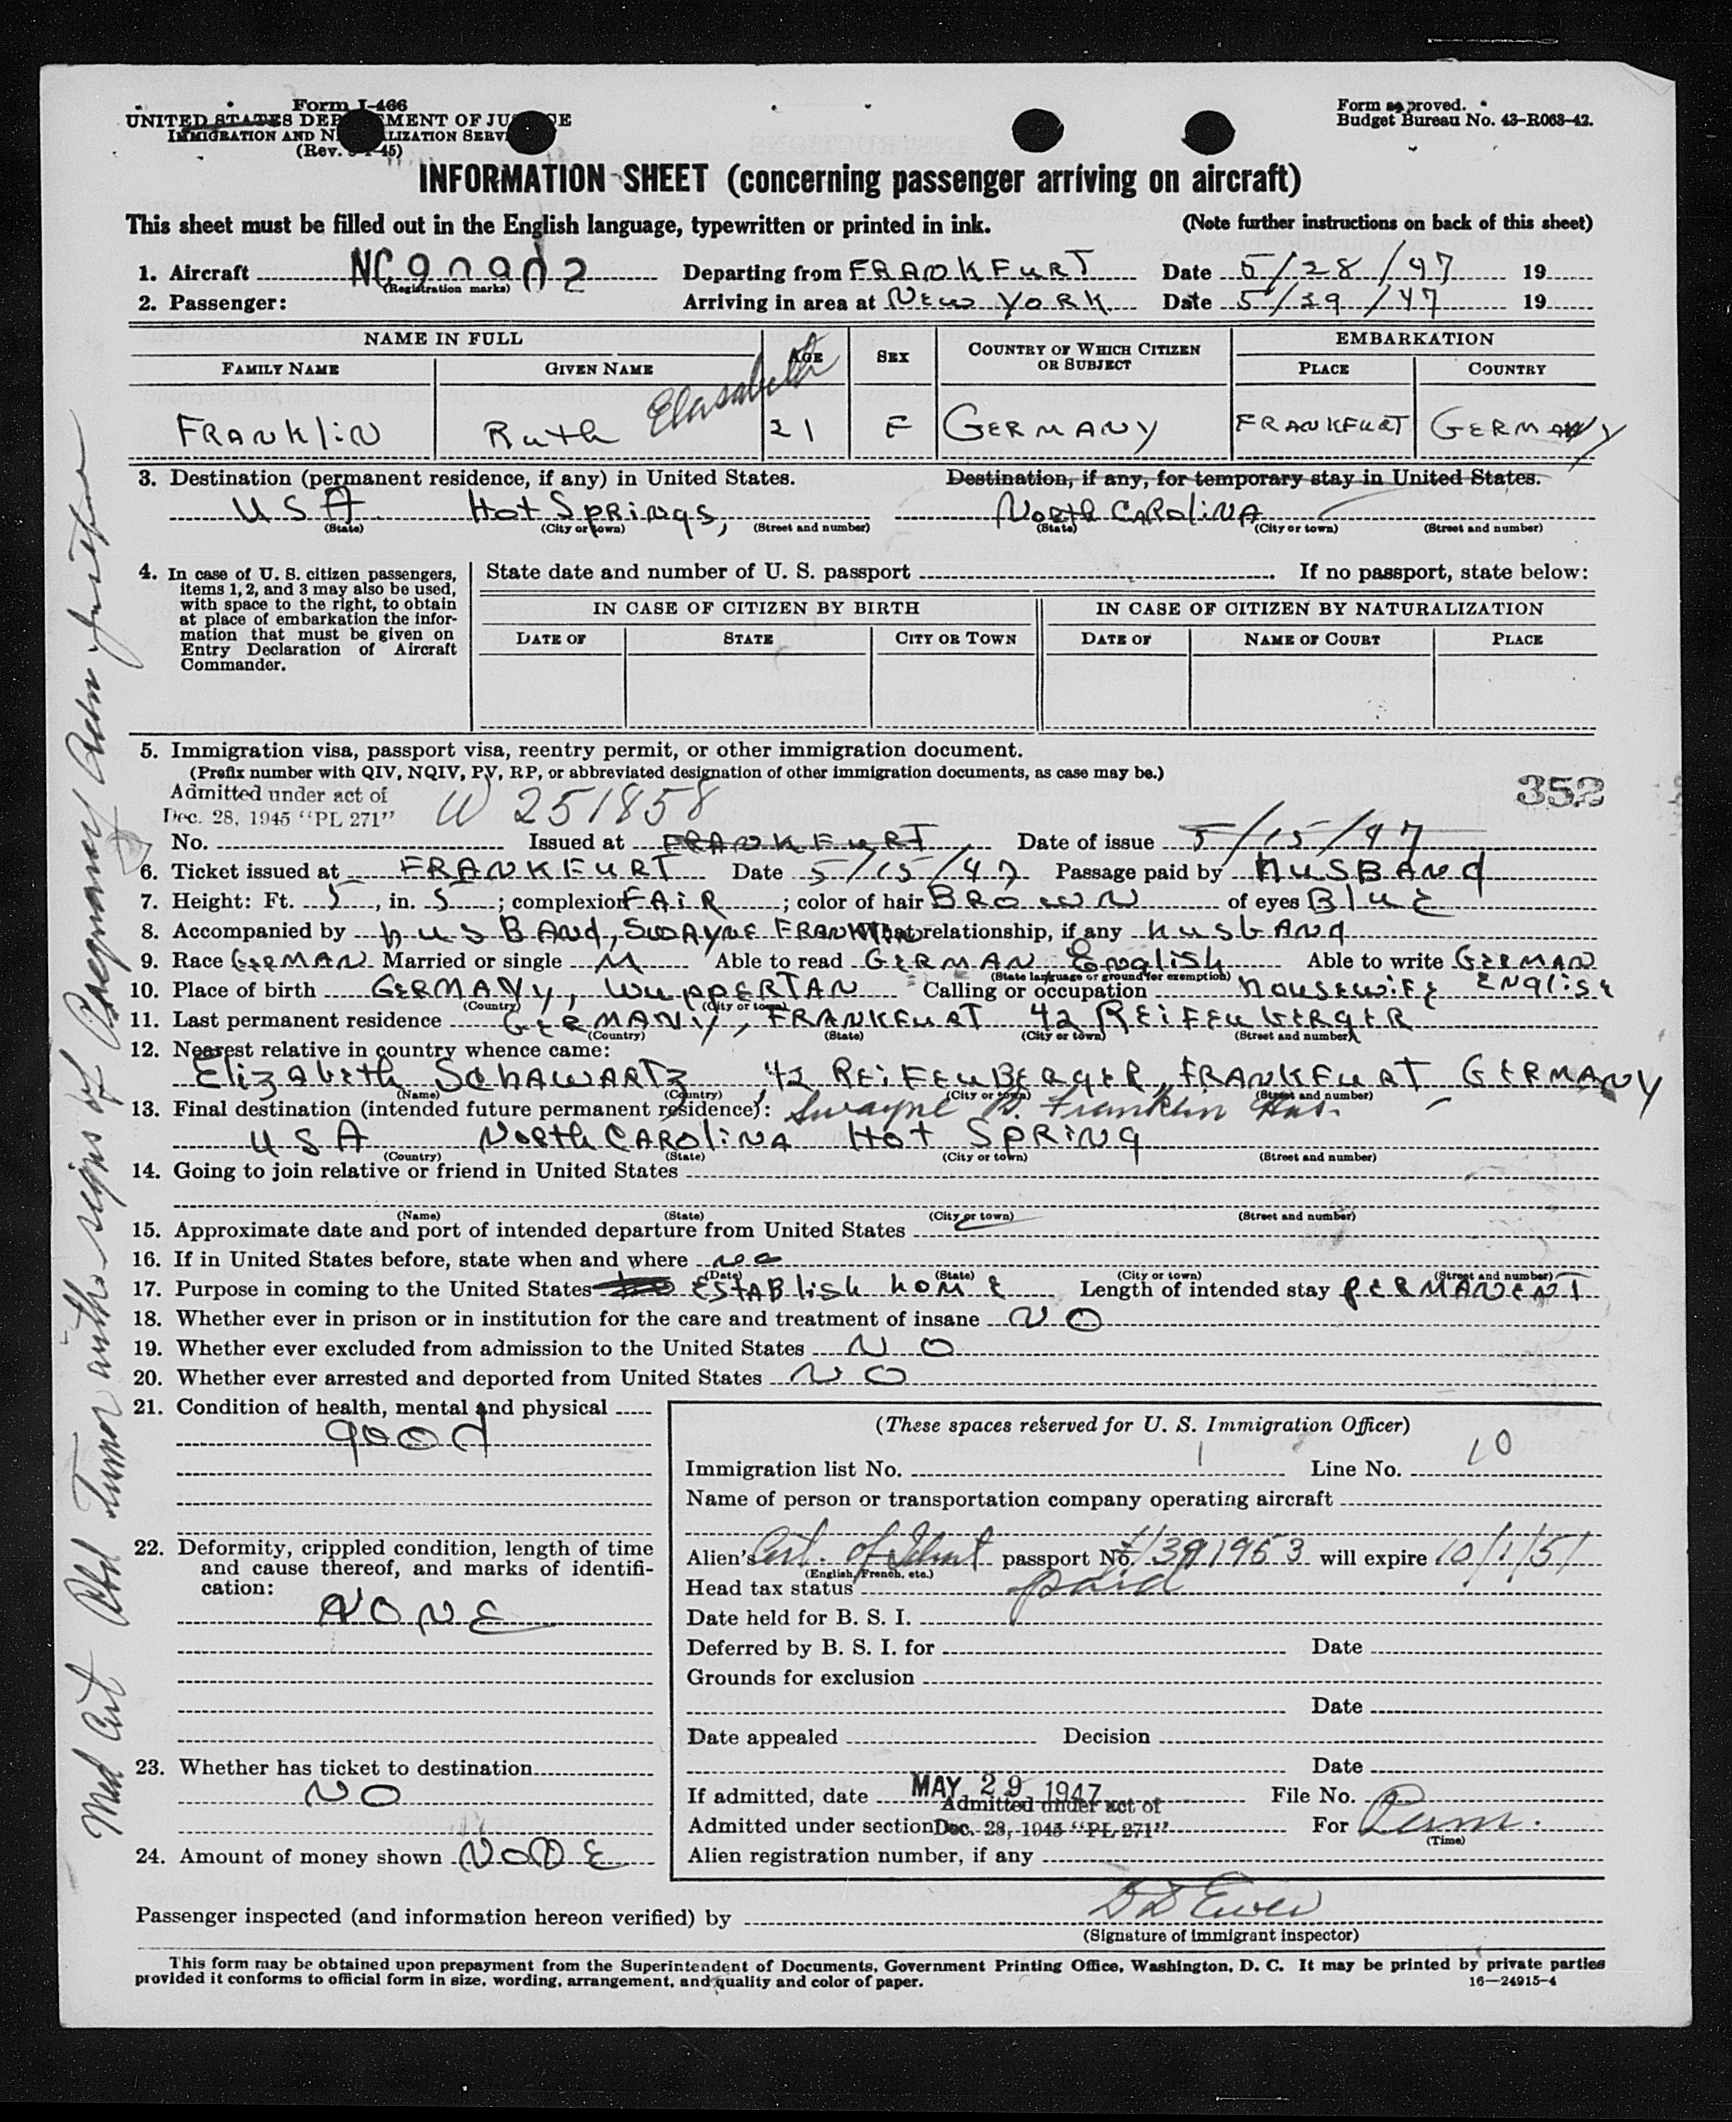 Form I-466
UNITED STATES DEPARTMENT OF JUSTICE
IMMIGRATION AND NATURALIZATION SERVICE
(Rev. 45)
Form approved.
Budget Bureau No. 43-R063-42.
INFORMATION SHEET (concerning passenger arriving on aircraft)
This sheet must be filled out in the English language, typewritten or printed in ink. (Note further instructions on back of this sheet)
1. Aircraft NC90902 Departing from FRANKFURT Date 5/28/47 19
(Registration marks)
2. Passenger: Arriving in area at NEW YORK Date 5/29/47 19
NAME IN FULL AGE SEX COUNTRY OF WHICH CITIZEN OR SUBJECT EMBARKATION
FAMILY NAME GIVEN NAME PLACE COUNTRY
FRANKLIN Ruth Elasabeth 21 F GERMANY FRANKFURT GERMANY
3. Destination (permanent residence, if any) in United States. Destination, if any, for temporary stay in United States.
USA Hot SPRINGS, NORTH CAROLINA
(State) (City or town) (Street and number) (State) (City or town) (Street and number)
4. In case of U. S. citizen passengers,
items 1, 2, and 3 may also be used,
with space to the right, to obtain
at place of embarkation the infor-
mation that must be given on
Entry Declaration of Aircraft
Commander.
State date and number of U. S. passport . If no passport, state below:
IN CASE OF CITIZEN BY BIRTH IN CASE OF CITIZEN BY NATURALIZATION
DATE OF STATE CITY OR TOWN DATE OF NAME OF COURT PLACE
5. Immigration visa, passport visa, reentry permit, or other immigration document.
(Prefix number with QIV, NQIV, PV, RP, or abbreviated designation of other immigration documents, as case may be.)
352
Admitted under act of
Dec. 28, 1945 "PL 271" W 251858
No. Issued at FRANKFURT Date of issue 5/15/47
6. Ticket issued at FRANKFURT Date 5/15/47 Passage paid by HUSBAND
7. Height: Ft. 5, in. 5; complexion FAIR; color of hair BROWN of eyes BLUE
8. Accompanied by HUSBAND, SWAYNE FRANKLIN What relationship, if any HUSBAND
9. Race GERMAN Married or single M Able to read GERMAN English Able to write GERMAN
(State language or ground for exemption)
10. Place of birth GERMANY, WUPPERTAN Calling or occupation HOUSEWIFE ENGLISH
(Country) (City or town)
11. Last permanent residence GERMANY, FRANKFURT 42 REIFENBERGER
(Country) (State) (City or town) (Street and number)
12. Nearest relative in country whence came:
Elizabeth SCHAWARTZ, 42 REIFENBERGER, FRANKFURT GERMANY
(Name) (Country) (City or town) (Street and number)
13. Final destination (intended future permanent residence): Swayne B. Franklin Hus.
USA NORTH CAROLINA HOT SPRING
(Country) (State) (City or town) (Street and number)
14. Going to join relative or friend in United States
(Name) (State) (City or town) (Street and number)
15. Approximate date and port of intended departure from United States
16. If in United States before, state when and where NO
(Date) (State) (City or town) (Street and number)
17. Purpose in coming to the United States ESTABLISH HOME Length of intended stay PERMANENT
18. Whether ever in prison or in institution for the care and treatment of insane NO
19. Whether ever excluded from admission to the United States NO
20. Whether ever arrested and deported from United States NO
21. Condition of health, mental and physical
good
22. Deformity, crippled condition, length of time
and cause thereof, and marks of identifi-
cation:
NONE
23. Whether has ticket to destination
NO
24. Amount of money shown NONE
(These spaces reserved for U. S. Immigration Officer)
Immigration list No. 1 Line No. 10
Name of person or transportation company operating aircraft
Alien's Cert. of Ident passport No. 391953 will expire 10/1/51
(English, French, etc.)
Head tax status paid
Date held for B. S. I.
Deferred by B. S. I. for Date
Grounds for exclusion
Date
Date appealed Decision
Date
If admitted, date MAY 29 1947 File No.
Admitted under act of
Admitted under section Dec. 28, 1945 "PL 271" For Perm.
(Time)
Alien registration number, if any
Passenger inspected (and information hereon verified) by
(Signature of immigrant inspector)
This form may be obtained upon prepayment from the Superintendent of Documents, Government Printing Office, Washington, D. C. It may be printed by private parties
provided it conforms to official form in size, wording, arrangement, and quality and color of paper. 16—24915-4
Med Cert Abd Tumor with signs of Pregnancy